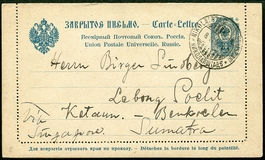 ЗАКРЫТОЕ ПИСЬМО. — Carte-Lettre.
Всемірный Почтовый Союзъ. Россія.
Union Postale Universelle. Russie.
Herrn Birger
Lebong Poelit
Via Ketaun. - Benkoelen
Singapore. Sumatra
Для вскрытія отрывать края по проколу. — Détachez la bordure le long du pointillé.